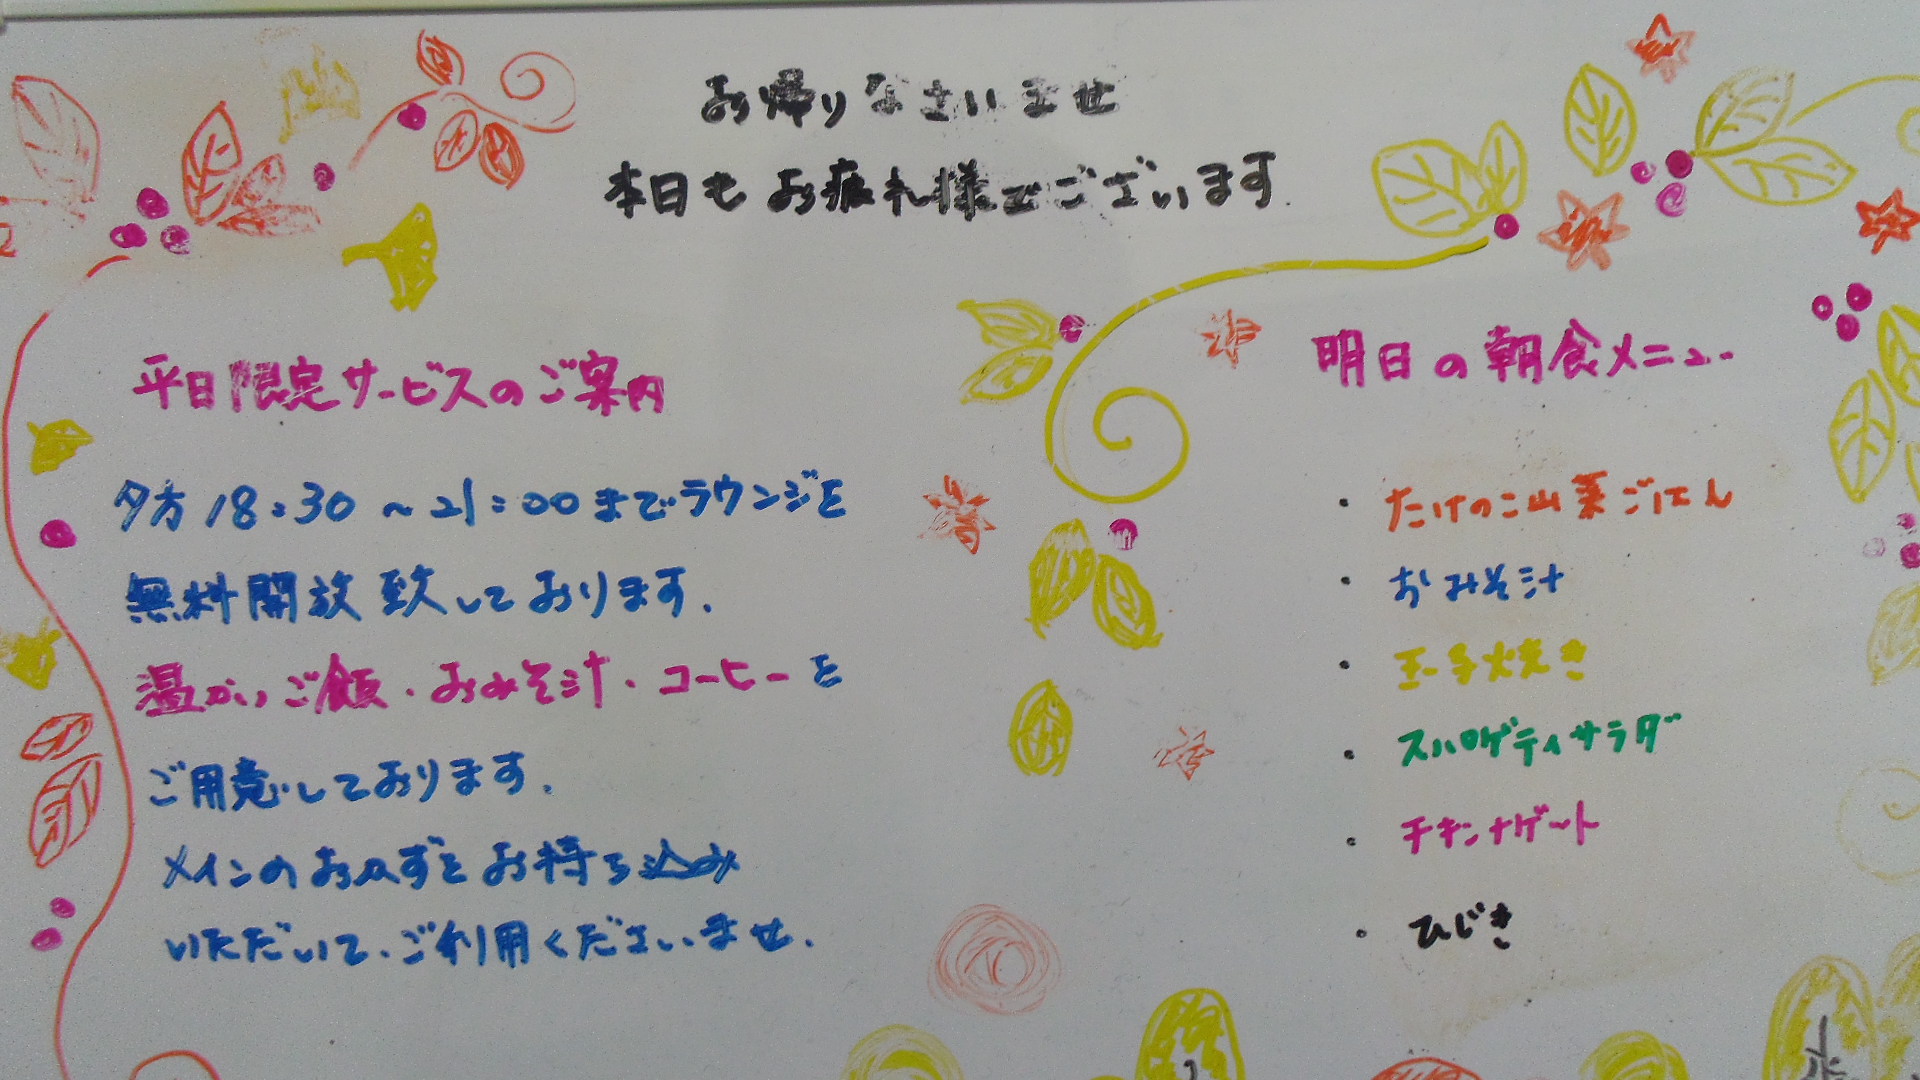 お帰りなさいませ
本日もお疲れ様でございます
平日限定サービスのご案内
夕方18:30～21:00までラウンジを
無料開放致しております.
温かいご飯・おみそ汁・コーヒーを
ご用意しております.
メインのおかずをお持ち込み
いただいて、ご利用くださいませ.
明日の朝食メニュー
・たけのこ山菜ごはん
・おみそ汁
・玉子焼き
・スパゲティサラダ
・チキンナゲット
・ひじき